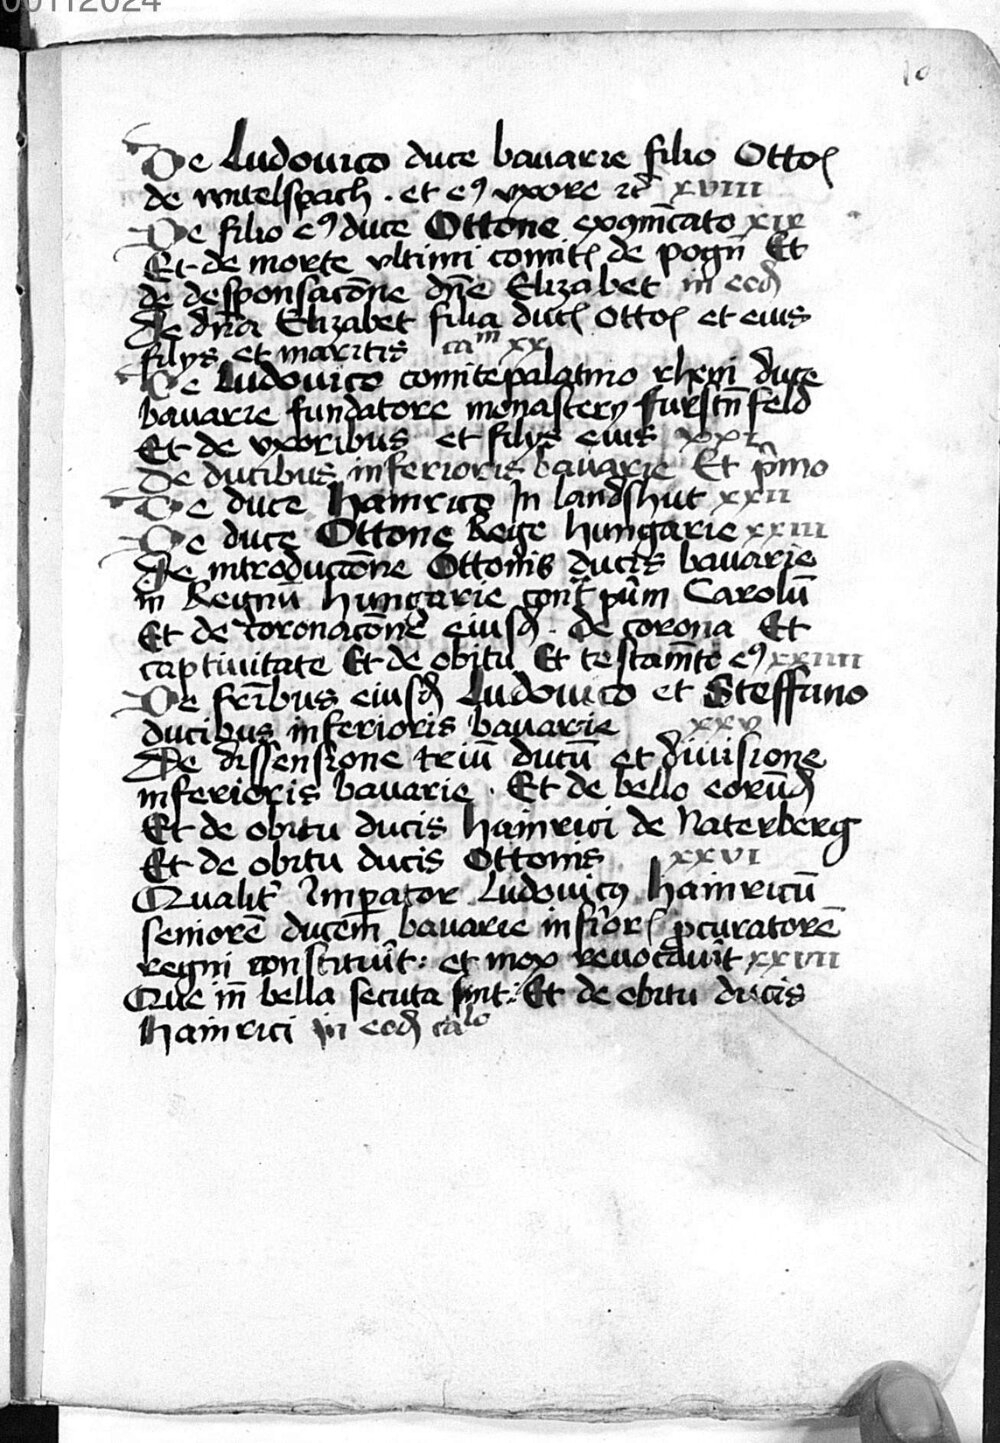 00112024
10
De Ludouico duce bauarie filio Ottoſ
de witelspach . et eꝰ vxore ꝛcͣ xviii
De filio eꝰ duce Ottone exꝯmc̄ato xix
Et de morte vltimi comitꝭ de pogn̄ Et
de desponsacōne dn̄e Elizabet in eod̄
De dn̄a Elizabet filia ducꝭ Ottoꝭ et eius
filys et maritis caᵐ xx
De Ludouico comitepalatino rheni duce
bauarie fundatore monastery furstn̄feld
Et de vxoribus et filys eius xxi
De ducibus inferioris bauarie Et p̄mo
De duce Hainrico In landshut xxii
De duce Ottone Rege hungarie xxiii
De introductōne Ottonis ducis bauarie
in Regnū hungarie cont̄ pūm Carolū
Et de coronacōne eiusd̄ . de corona Et
captiuitate Et de obitu Et testam̄to eꝰ xxiiii
De fr̄ibus eiusd̄ Ludouico et Steffano
ducibus inferioris bauarie xxv
De dissensione triū ducū et diuisione
inferioris bauarie . Et de bello eorūd̄
Et de obitu ducis Hainrici de Naterberg
Et de obitu ducis Ottonis xxvi
Qualit̄ Imꝑator Ludouicꝰ Hainricū
seniorē ducem bauarie inf̄iorꝭ ꝓcuratorē
regni constituit : et mox reuocauit xxvii
Que in̄ bella secuta sint : Et de obitu ducis
Hainrici in eod̄ caᵖˡᵒ